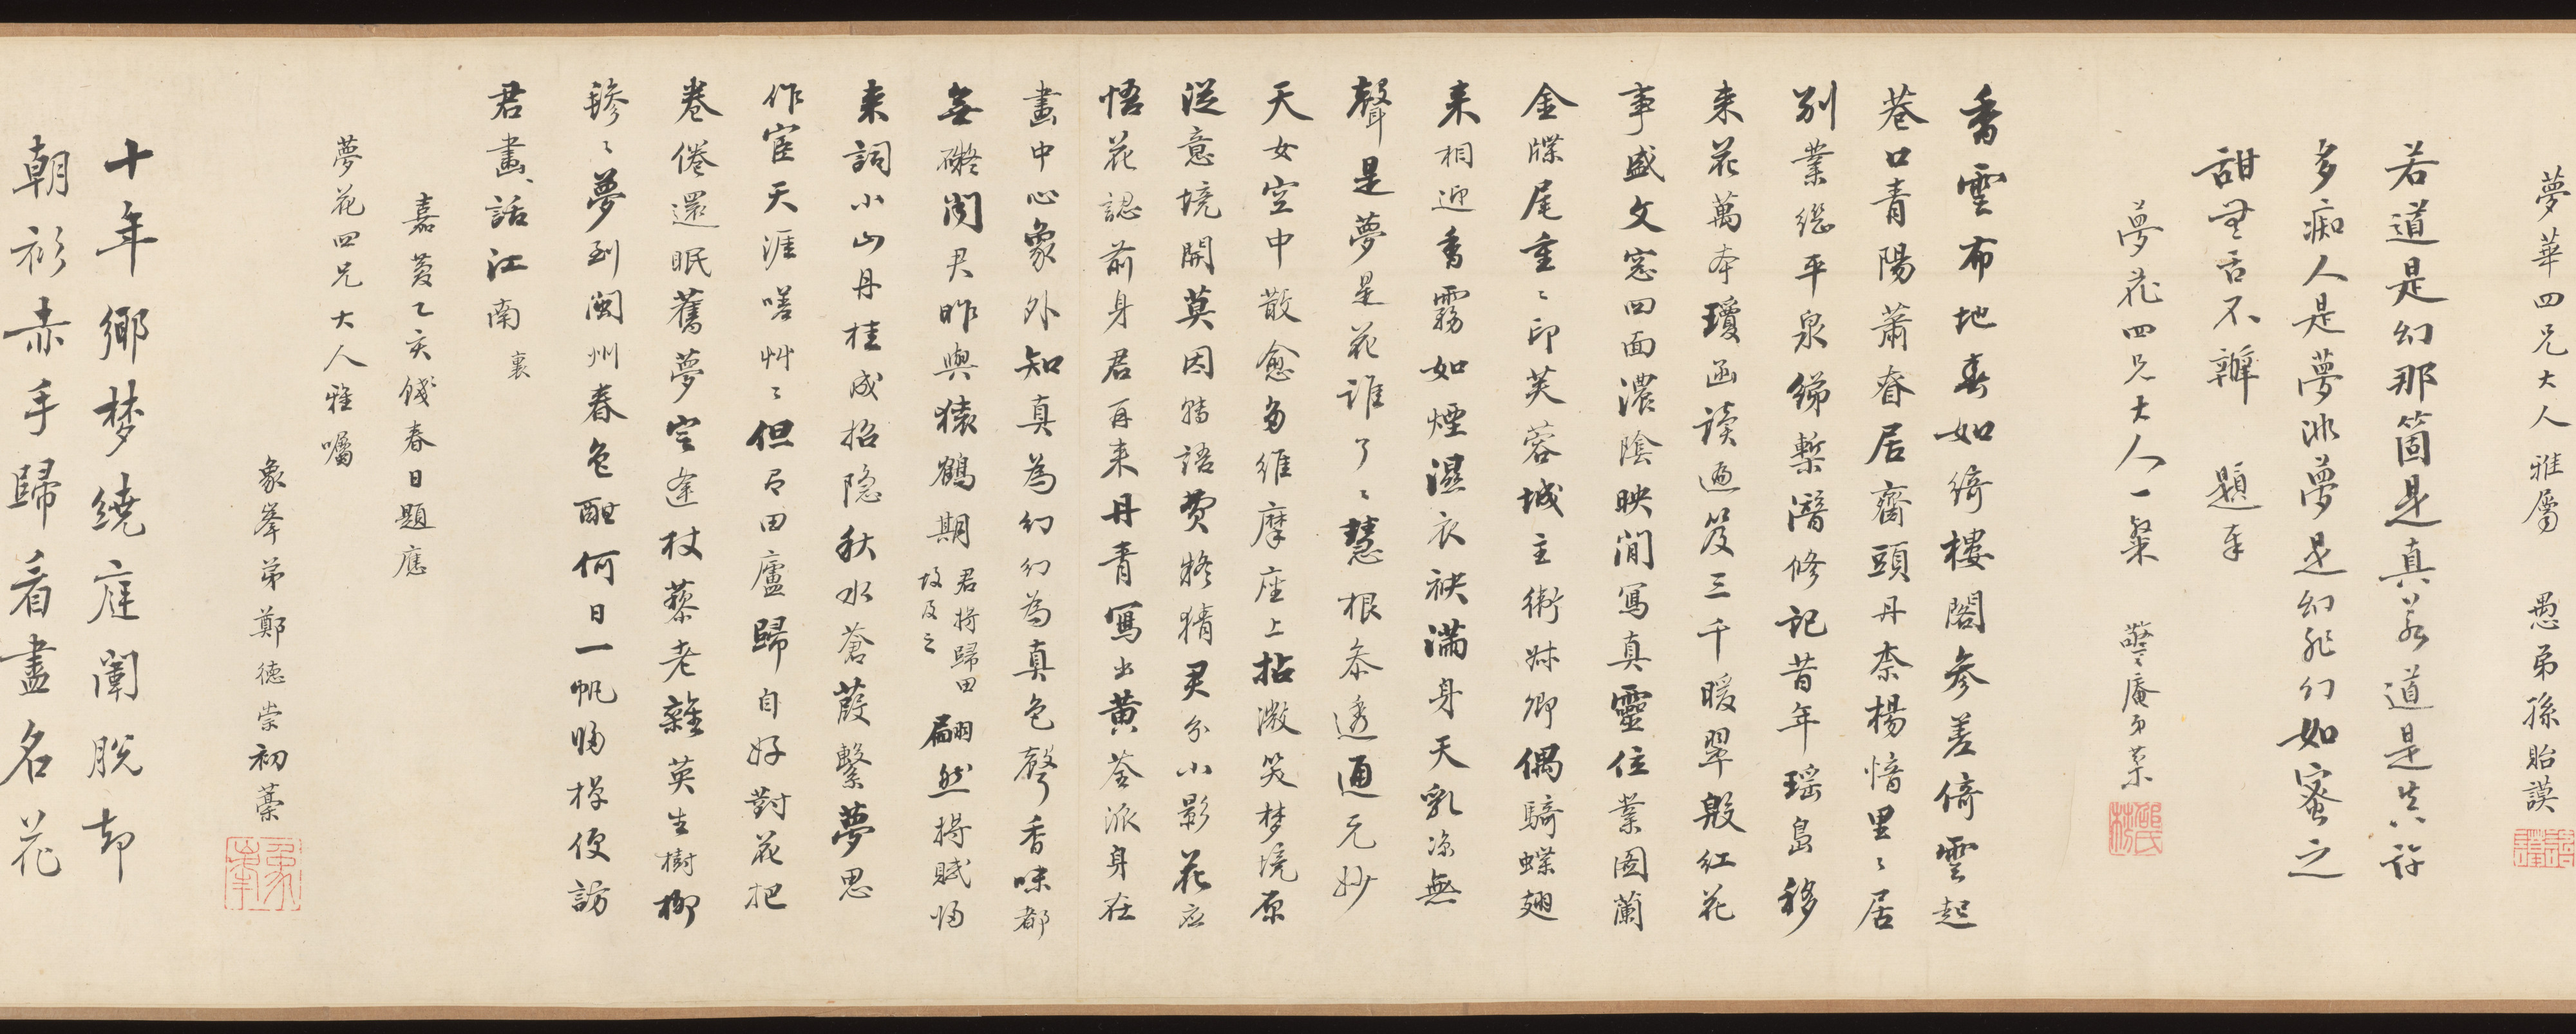 夢華四兄大人雅屬 愚弟孫貽謨
若道是幻那箇是真若道是真許
多痴人是夢非夢是幻非幻如蜜之
甜無舌不辨 題奉
夢花四兄大人一粲 警庵弟棻
香雲布地春如綺樓閣參差倚雲起
巷口青陽蕭眘居齋頭丹柰楊愔里〻居
別業継平泉鄉槧潛修記昔年瑶島移
来花萬本瓊函讀遍笈三千暖翠殷紅花
事盛文窓四面濃陰映閒寫真靈位業圖蘭
金牒尾重〻印芙蓉城主衛姊卿偶騎蝶翅
来相迎香霧如煙濕衣袂滿身天乳凉無
聲是夢是花誰了〻慧根叅透通元妙
天女空中散愈多維摩座上拈微笑梦境原
從意境開莫因鵲語費疑猜君分小影花應
悟花認前身君再来丹青寫出黄荃派身在
畫中心象外知真為幻幻為真色聲香味都
無礙聞君昨與猿鶴期君將歸田故及之翩然擬賦歸
来詞小山丹桂成招隐秋水蒼葭繫夢思
作宦天涯嗟艸〻但有田廬歸自好對花把
卷倦還眠舊夢空逢杖藜老雜英生樹柳
毿〻夢到閩州春色酣何日一帆歸棹便訪
君畫裏話江南
嘉慶乙亥餞春日題應
夢花四兄大人雅囑
象峯弟鄭德崇初藁
十年鄉梦繞庭闈脫却
朝衫赤手歸看盡名花